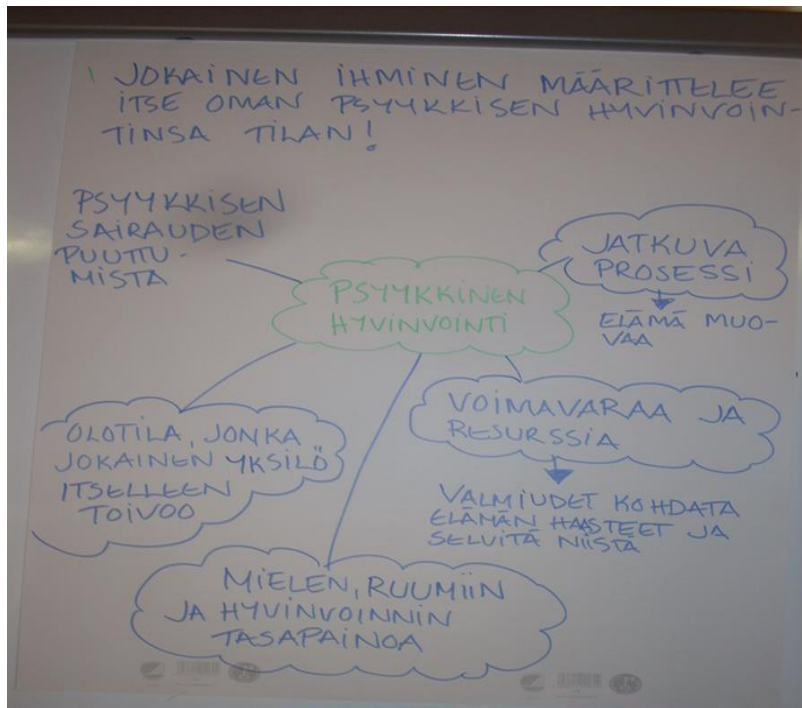 JOKAINEN IHMINEN MÄÄRITTELEE
ITSE OMAN PSYYKKISEN HYVINVOIN-
TINSA TILAN!
PSYYKKISEN
SAIRAUDEN
PUUTTU-
MISTA
PSYYKKINEN
HYVINVOINTI
JATKUVA
PROSESSI
ELÄMÄ MUO-
VAA
VOIMAVARAA JA
RESURSSIA
VALMIUDET KOHDATA
ELÄMÄN HAASTEET JA
SELVITÄ NIISTÄ
OLOTILA, JONKA
JOKAINEN YKSILÖ
ITSELLEEN
TOIVOO
MIELEN, RUUMIIN
JA HYVINVOINNIN
TASAPAINOA